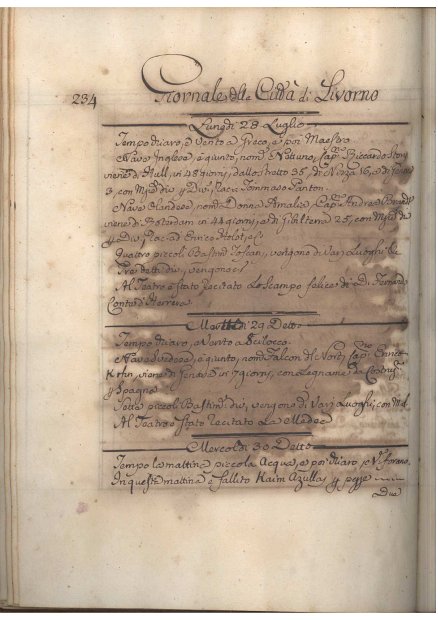 234 Giornale della Città di Livorno
Lunedì 28 Luglio
Tempo chiaro, e Vento a Greco, e poi Maestro
Nave Inglese, è giunto, nom.ª Nettuno, Cap.º Riccardo
viene di Hull, in 48 giorni, dallo stretto 35, di Nizza 16, e di
3, con M.d div.e p Div.i, Rac.ª Tommaso Panton.
Nave Olandese, nom.ª Donna Amalia, Cap.º Andrea
viene di Roterdam in 44 giorni, e di Gibilterra 25, con M.d di
p Div.i, Rac. ad Enrico
Quattro piccoli Bastim.ti Toscani, vengono di Varj Luoghi, e
Tre detti div.i, vengono
Al Teatro è stato recitato Lo Scampo felice di D. Fernando
Conte d'Herrera
Martedì 29 Detto
Tempo chiaro, e Vento a Scilocco
Nave Svedese, è giunto, nom.ª Falcon del Nord, Cap.º Enrico
viene di Genova in 7 giorni, con Legname da
p Spagna
Sette piccoli Bastim.ti div.i, vengono di Varj Luoghi, con M.d
Al Teatro è stato recitato La Medea
Mercoldì 30 Detto
Tempo la mattina piccola Acqua, e poi chiaro, e V.º forano.
In questa mattina è fallito Kaim Azullai p pezze
Due